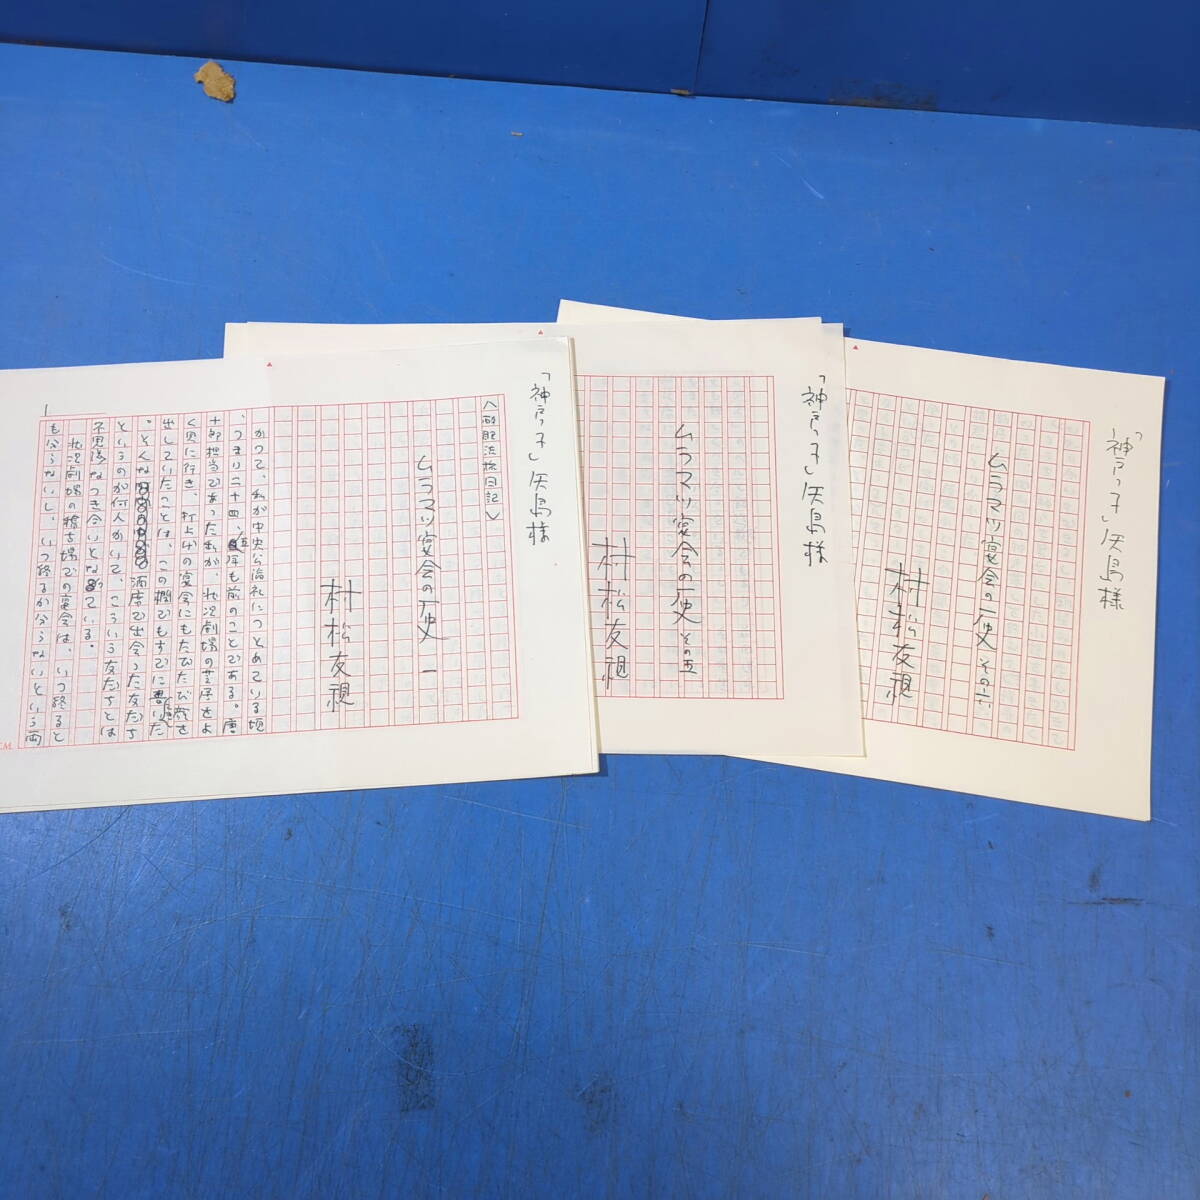 「神戸っ子」矢島様
ムラマツ宴会の歴史 その六
村松友視
「神戸っ子」矢島様
ムラマツ宴会の歴史 その五
村松友視
「神戸っ子」矢島様
〈酩酊流旅日記〉
ムラマツ宴会の歴史 一
村松友視
かつて、私が中央公論社につとめている頃
、つまり二十四、五年も前のことである。唐
十郎担当であった私が、状況劇場の芝居をよ
く見に行き、打上げの宴会にもたびたび顔を
出していたことは、この欄でもすでに書いた
。そんな酒席で出会った友だち
というのが何人かいて、こういう友だちとは
不思議なつき合いとなっている。
状況劇場の稽古場での宴会は、いつ終ると
も分らないし、いつ終るか分らないという両
1